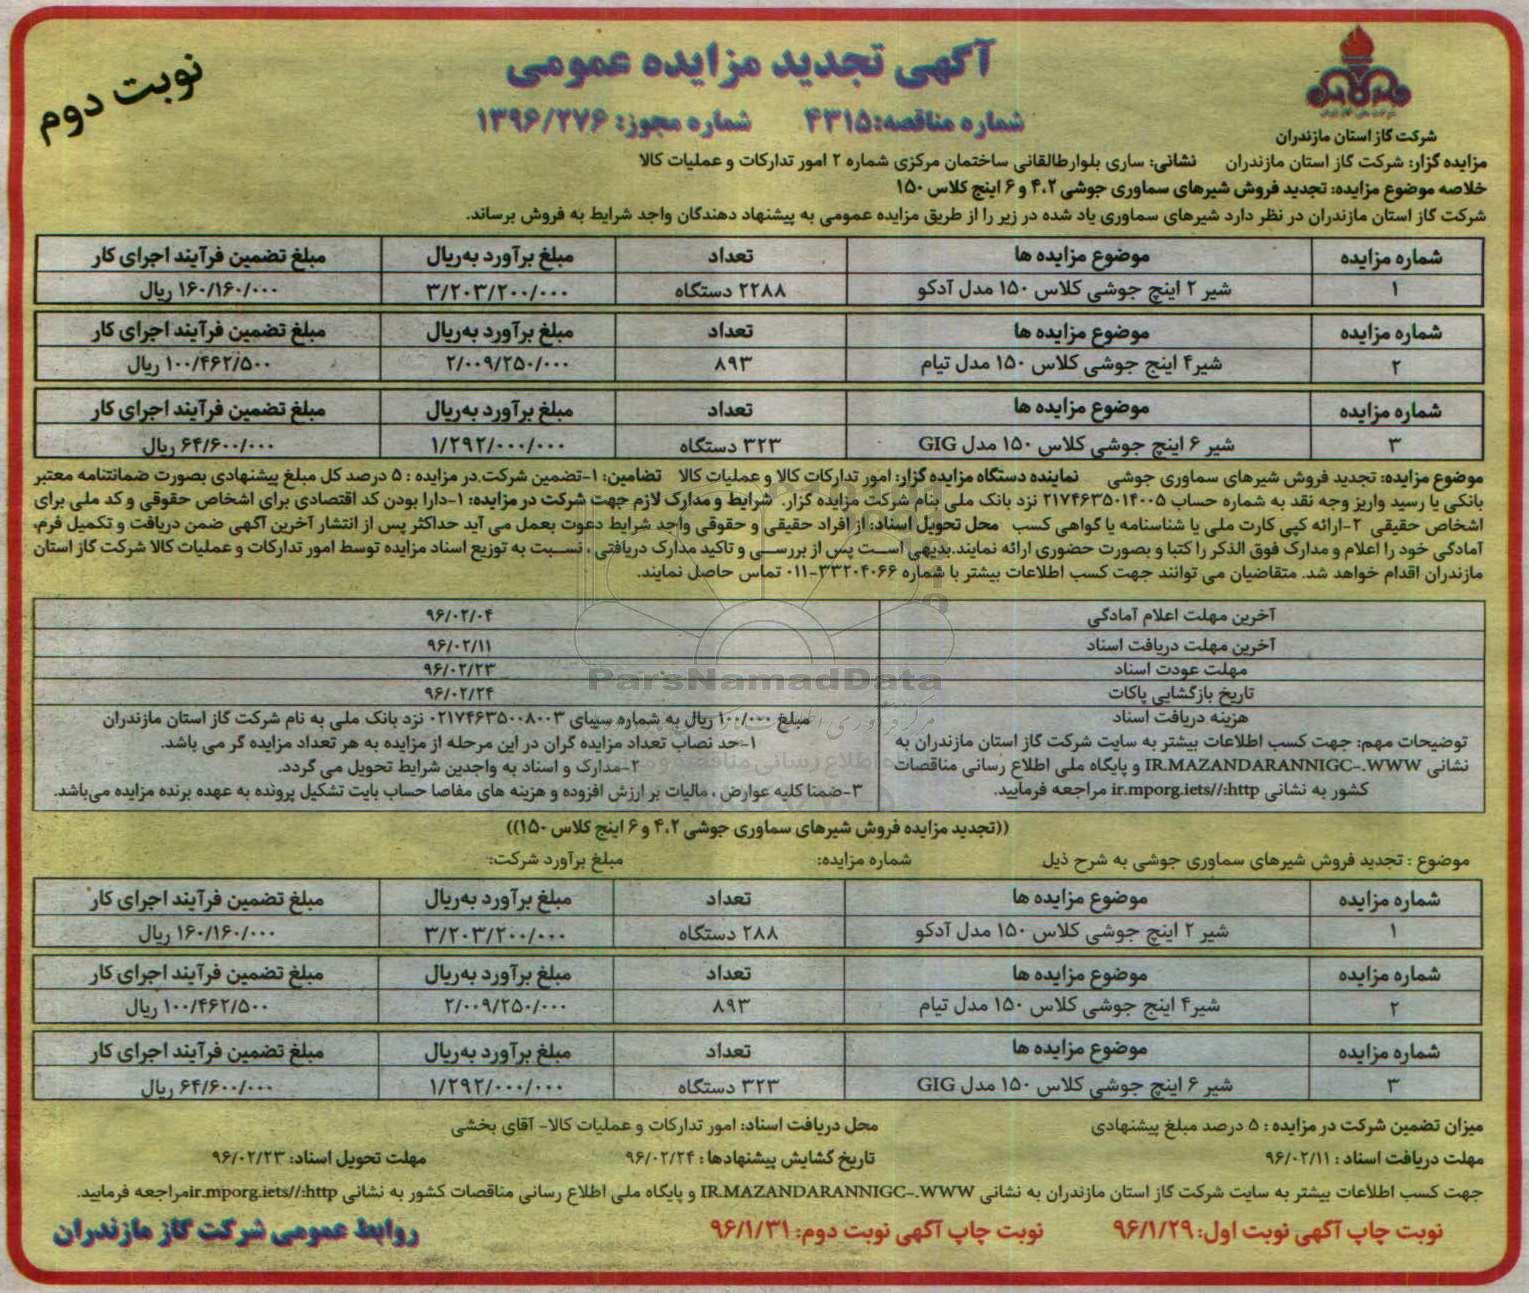 آگهی تجدید مزایده عمومی
نوبت دوم
شماره مناقصه: ۴۳۱۵ شماره مجوز: ۱۳۹۶/۲۷۶
شرکت گاز استان مازندران
مزایده گزار: شرکت گاز استان مازندران نشانی: ساری بلوارطالقانی ساختمان مرکزی شماره ۲ امور تدارکات و عملیات کالا
خلاصه موضوع مزایده: تجدید فروش شیرهای سماوری جوشی ۴،۲ و ۶ اینچ کلاس ۱۵۰
شرکت گاز استان مازندران در نظر دارد شیرهای سماوری یاد شده در زیر را از طریق مزایده عمومی به پیشنهاد دهندگان واجد شرایط به فروش برساند.
شماره مزایده موضوع مزایده ها تعداد مبلغ برآورد به‌ریال مبلغ تضمین فرآیند اجرای کار
۱ شیر ۲ اینچ جوشی کلاس ۱۵۰ مدل آدکو ۲۲۸۸ دستگاه ۳/۲۰۳/۲۰۰/۰۰۰ ۱۶۰/۱۶۰/۰۰۰ ریال
شماره مزایده موضوع مزایده ها تعداد مبلغ برآورد به‌ریال مبلغ تضمین فرآیند اجرای کار
۲ شیر۴ اینچ جوشی کلاس ۱۵۰ مدل تیام ۸۹۳ ۲/۰۰۹/۲۵۰/۰۰۰ ۱۰۰/۴۶۲/۵۰۰ ریال
شماره مزایده موضوع مزایده ها تعداد مبلغ برآورد به‌ریال مبلغ تضمین فرآیند اجرای کار
۳ شیر ۶ اینچ جوشی کلاس ۱۵۰ مدل GIG ۳۲۳ دستگاه ۱/۲۹۲/۰۰۰/۰۰۰ ۶۴/۶۰۰/۰۰۰ ریال
موضوع مزایده: تجدید فروش شیرهای سماوری جوشی نماینده دستگاه مزایده گزار: امور تدارکات کالا و عملیات کالا تضامین: ۱-تضمین شرکت در مزایده : ۵ درصد کل مبلغ پیشنهادی بصورت ضمانتنامه معتبر
بانکی یا رسید واریز وجه نقد به شماره حساب ۲۱۷۴۶۳۵۰۱۴۰۰۵ نزد بانک ملی بنام شرکت مزایده گزار. شرایط و مدارک لازم جهت شرکت در مزایده: ۱-دارا بودن کد اقتصادی برای اشخاص حقوقی و کد ملی برای
اشخاص حقیقی ۲-ارائه کپی کارت ملی یا شناسنامه یا گواهی کسب محل تحویل اسناد: از افراد حقیقی و حقوقی واجد شرایط دعوت بعمل می آید حداکثر پس از انتشار آخرین آگهی ضمن دریافت و تکمیل فرم،
آمادگی خود را اعلام و مدارک فوق الذکر را کتبا و بصورت حضوری ارائه نمایند.بدیهی است پس از بررسی و تاکید مدارک دریافتی ، نسبت به توزیع اسناد مزایده توسط امور تدارکات و عملیات کالا شرکت گاز استان
مازندران اقدام خواهد شد. متقاضیان می توانند جهت کسب اطلاعات بیشتر با شماره ۳۳۲۰۴۰۶۶-۰۱۱ تماس حاصل نمایند.
آخرین مهلت اعلام آمادگی ۹۶/۰۲/۰۴
آخرین مهلت دریافت اسناد ۹۶/۰۲/۱۱
مهلت عودت اسناد ۹۶/۰۲/۲۳
تاریخ بازگشایی پاکات ۹۶/۰۲/۲۴
ParsNamadData
هزینه دریافت اسناد مبلغ ۱۰۰/۰۰۰ ریال به شماره سیبای ۰۲۱۷۴۶۳۵۰۰۸۰۰۳ نزد بانک ملی به نام شرکت گاز استان مازندران
توضیحات مهم: جهت کسب اطلاعات بیشتر به سایت شرکت گاز استان مازندران به ۱-حد نصاب تعداد مزایده گران در این مرحله از مزایده به هر تعداد مزایده گر می باشد.
نشانی IR.MAZANDARANNIGC-.WWW و پایگاه ملی اطلاع رسانی مناقصات ۲-مدارک و اسناد به واجدین شرایط تحویل می گردد.
کشور به نشانی ir.mporg.iets//:http مراجعه فرمایید. ۳-ضمنا کلیه عوارض ، مالیات بر ارزش افزوده و هزینه های مفاصا حساب بابت تشکیل پرونده به عهده برنده مزایده می‌باشد.
((تجدید مزایده فروش شیرهای سماوری جوشی ۴،۲ و ۶ اینچ کلاس ۱۵۰))
موضوع : تجدید فروش شیرهای سماوری جوشی به شرح ذیل شماره مزایده: مبلغ برآورد شرکت:
شماره مزایده موضوع مزایده ها تعداد مبلغ برآورد به‌ریال مبلغ تضمین فرآیند اجرای کار
۱ شیر ۲ اینچ جوشی کلاس ۱۵۰ مدل آدکو ۲۸۸ دستگاه ۳/۲۰۳/۲۰۰/۰۰۰ ۱۶۰/۱۶۰/۰۰۰ ریال
شماره مزایده موضوع مزایده ها تعداد مبلغ برآورد به‌ریال مبلغ تضمین فرآیند اجرای کار
۲ شیر۴ اینچ جوشی کلاس ۱۵۰ مدل تیام ۸۹۳ ۲/۰۰۹/۲۵۰/۰۰۰ ۱۰۰/۴۶۲/۵۰۰ ریال
شماره مزایده موضوع مزایده ها تعداد مبلغ برآورد به‌ریال مبلغ تضمین فرآیند اجرای کار
۳ شیر ۶ اینچ جوشی کلاس ۱۵۰ مدل GIG ۳۲۳ دستگاه ۱/۲۹۲/۰۰۰/۰۰۰ ۶۴/۶۰۰/۰۰۰ ریال
میزان تضمین شرکت در مزایده : ۵ درصد مبلغ پیشنهادی محل دریافت اسناد: امور تدارکات و عملیات کالا- آقای بخشی
مهلت دریافت اسناد : ۹۶/۰۲/۱۱ تاریخ گشایش پیشنهادها : ۹۶/۰۲/۲۴ مهلت تحویل اسناد: ۹۶/۰۲/۲۳
جهت کسب اطلاعات بیشتر به سایت شرکت گاز استان مازندران به نشانی IR.MAZANDARANNIGC-.WWW و پایگاه ملی اطلاع رسانی مناقصات کشور به نشانی ir.mporg.iets//:http مراجعه فرمایید.
نوبت چاپ آگهی نوبت اول: ۹۶/۱/۲۹ نوبت چاپ آگهی نوبت دوم: ۹۶/۱/۳۱ روابط عمومی شرکت گاز مازندران